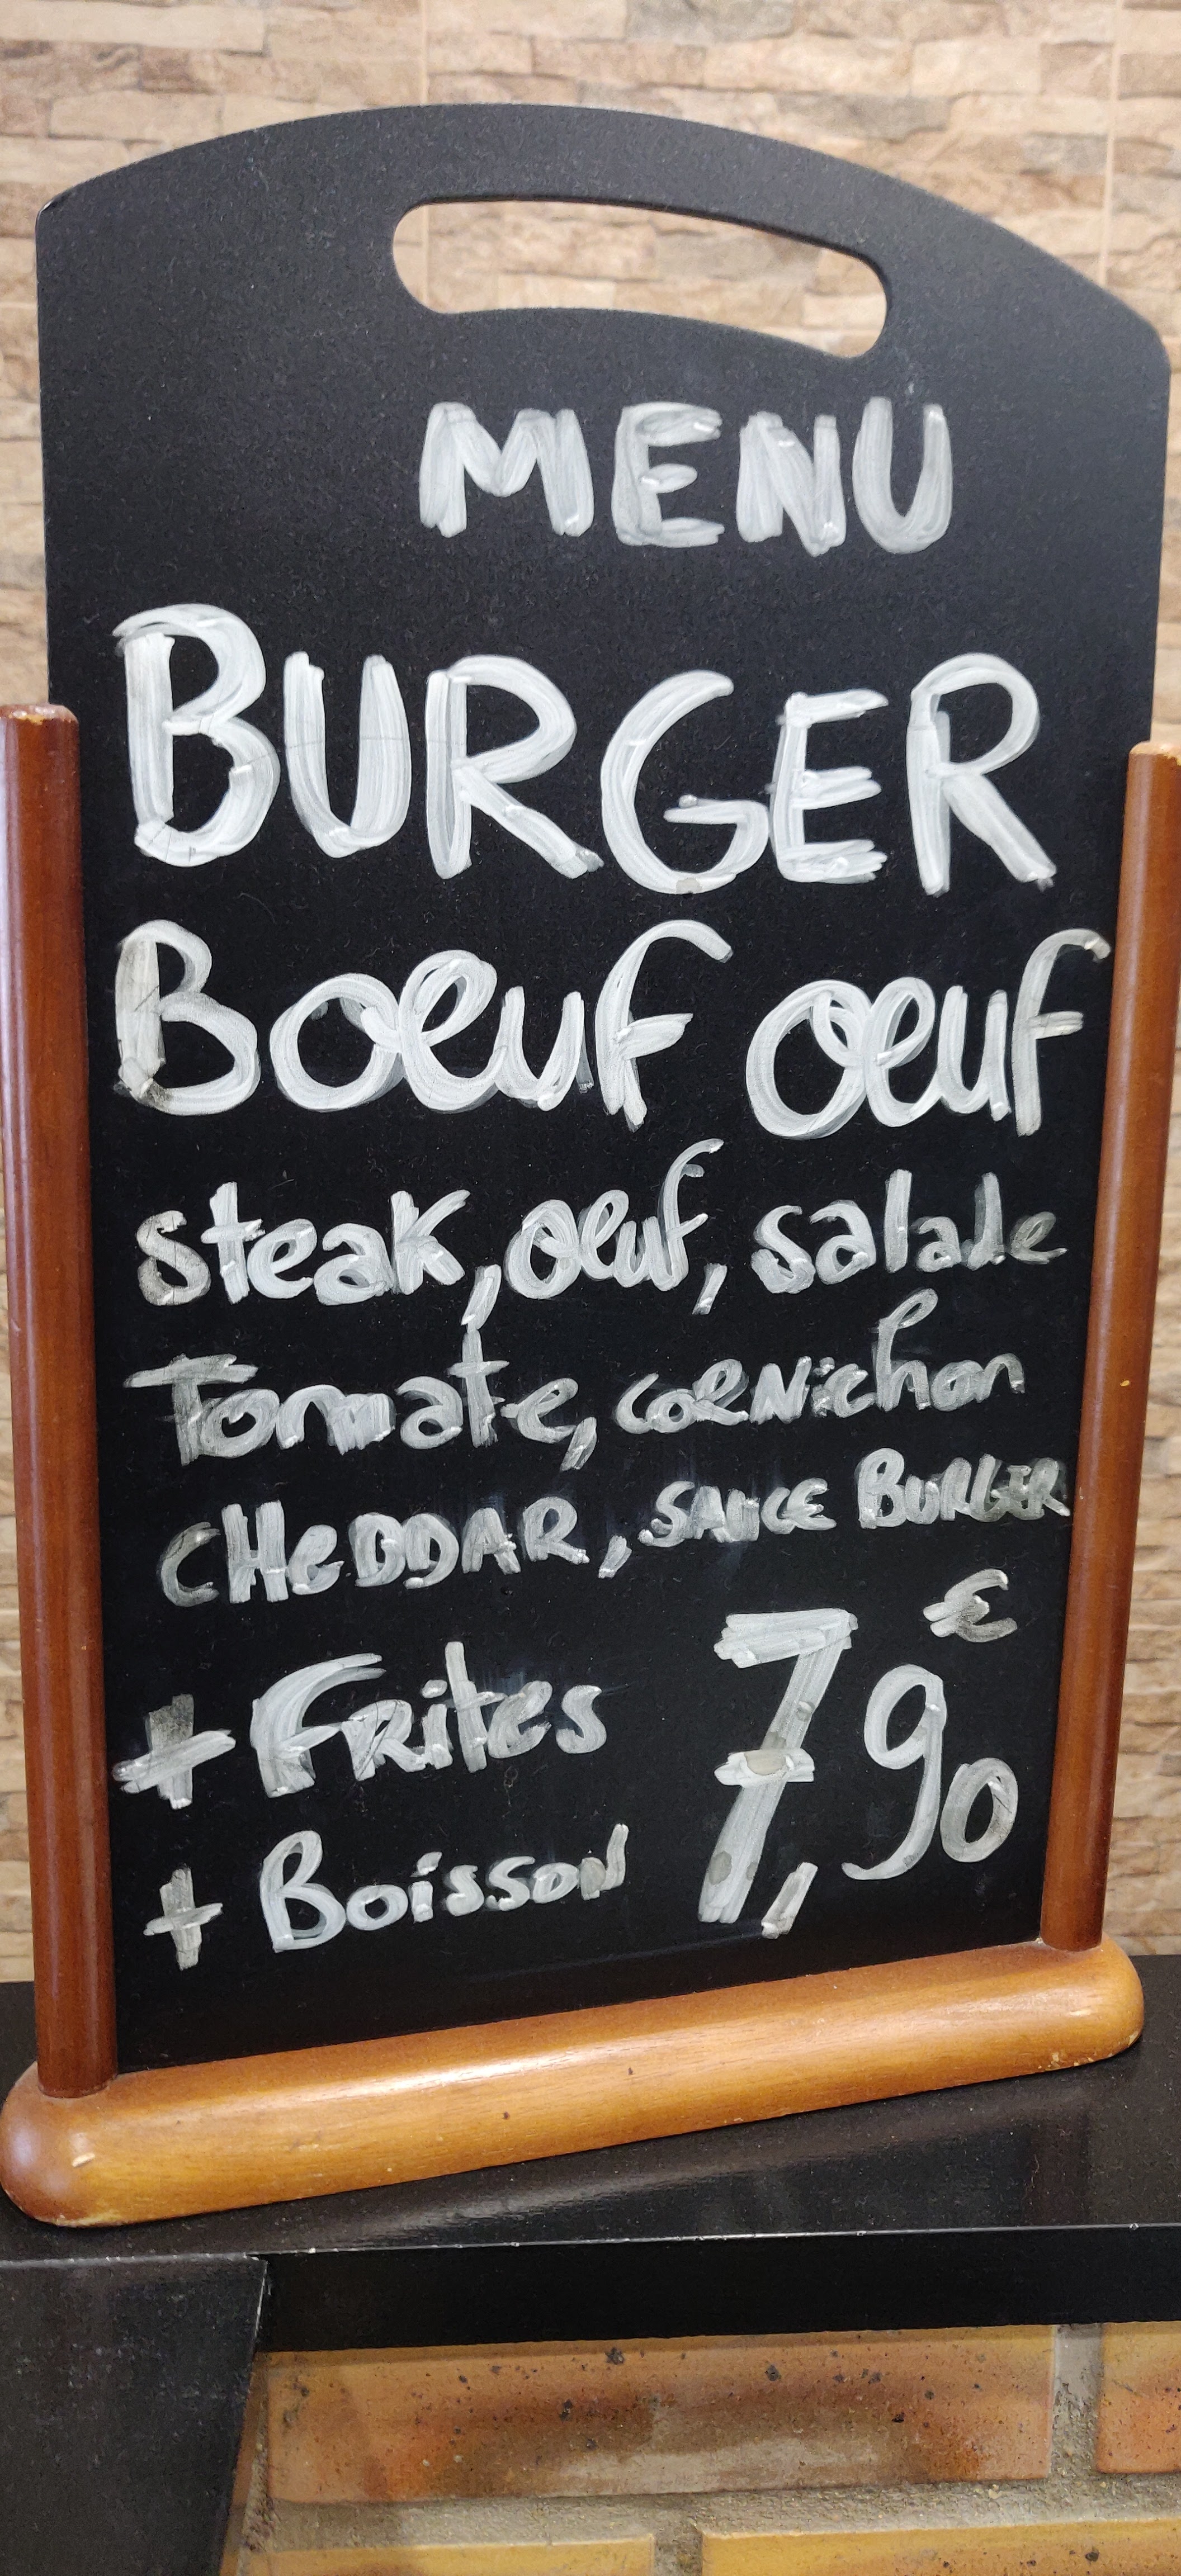 MENU
BURGER
Bœuf œuf
steak, œuf, salade
Tomate, coRNichon
CHeDDAR, SAUCE BURGER
+ FRites
+ Boisson
7,90 €